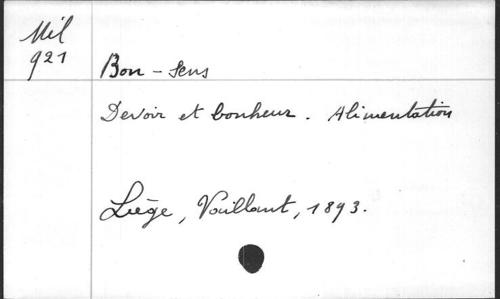 Mil
921
Bon - Sens
Devoir et bonheur. Alimentation
Liège, Vaillant, 1893.